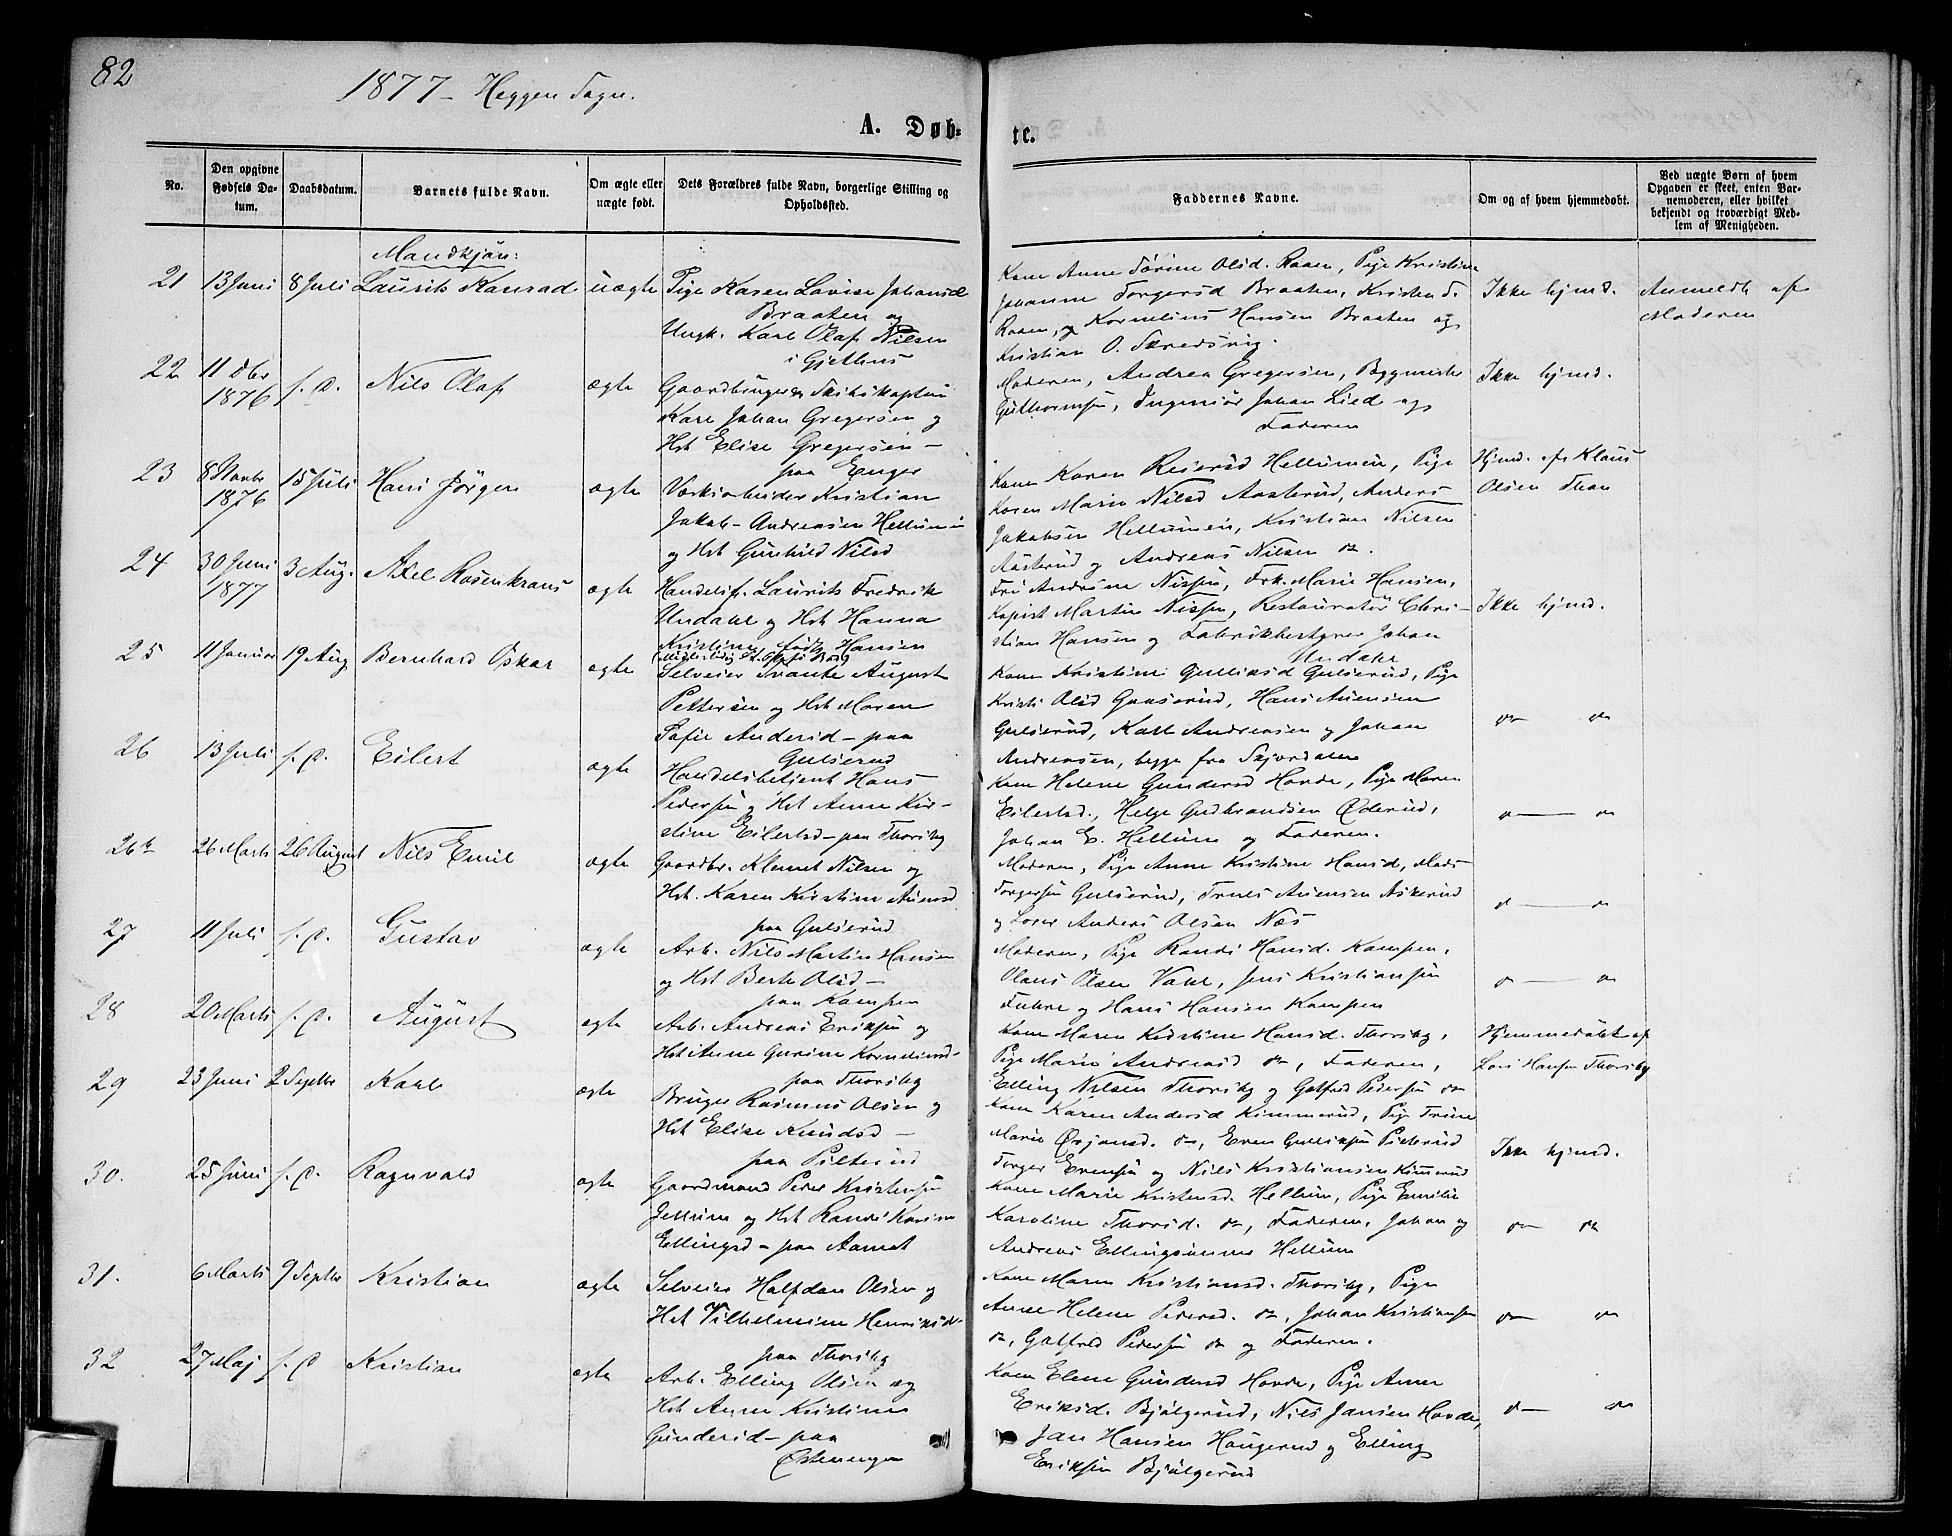 82
1877 - Heggen Sogn.
A. Døb-
te.
No.
Den opgivne Fødsels Da-
tum.
Daabsdatum.
Barnets fulde Navn.
Om ægte eller
uægte født.
Dets Forældres fulde Navn, borgerlige Stilling og
Opholdssted.
Faddernes Navne.
Om og af hvem hjemmedøbt.
Ved uægte Børn af hvem
Opgaven er skeet, enten Bar-
nemoderen, eller hvilket
bekjendt og troværdigt Med-
lem af Menigheden.
Mandkjøn:
21 13 Juni 8 Juli Laurits Konrad uægte
Pige Karen Lovise Johansd
Braaten og
Ungk. Karl Olaf Nilsen
i Gjethus
Kone Anne Torine Olsd. Raaen, Pige Kristine
Johanne Torgersd Braaten, Kristen T.
Raaen, Kornelius Hansen Braaten og
Kristian O. Skredsvig.
Ikke hjmd.
Anmeldt af
Moderen
22 11 Dbr
1876 s. D. Nils Olaf ægte
Gaardbruger og Skibskaptein
Karl Johan Gregersen og
Hst Elise Gregersen -
paa Enger
Moderen, Andrea Gregersen, Bygmester
Guthormsen, Ingeniør Johan Lied og
Faderen
Ikke hjmd.
23 8 Novbr
1876 15 Juli Hans Jørgen ægte
Værksarbeider Kristian
Jakob Andreasen Hellumeie
og Hst Gunhild Nilsd
Kone Karen Hellumeie, Pige
Karen Marie Nilsd Aasterud, Anders
Jakobsen Hellumeie, Kristian Nilsen
Aasterud og Andreas Nilsen do.
Hjmd. af Klaus
Olsen Thon
24 30 Juni
1877 3 Aug. Axel Rosenkrans ægte
Handelsf. Laurits Fredrik
Undahl og Hst Hanna
Kristine født Hansen
Fru Andrine Nissen, Frk. Marie Hansen,
Kopist Martin Nissen, Restauratør Chri-
stian Hansen og Fabrikbestyrer Johan
Undahl
Ikke hjmd.
25 11 Januar 19 Aug Bernhard Oskar ægte
Selveier Svante August
Pettersen og Hst Maren
Sofie Andersd - paa
Gulserud
Kone Kristine Gulliksd Gulserud, Pige
Kristi Olsd Gunserud, Hans Amensen
Gulserud, Karl Andreasen og Johan
Andreasen, begge fra
do - do
26 13 Juli s. D. Eilert ægte
Handelsbetjent Hans
Pedersen og Hst Anne Kir-
stine Eilertsd - paa Thorsby
Kone Helene Gundersd Hovde, Pige Maren
Eilertsd., Helge Gudbrandsen Øderud,
Johan E. Hellum og Faderen.
do - do
26b 26 Marts 26 August Nils Emil ægte
Gaardbr. Klemet Nilsen og
Hst. Karen Kristine Amensd
paa Gulserud
Moderen, Pige Anne Kristine Hansd, Mads
Torgersen Gulserud, Amensen Askerud
og Anders Olsen Næs
do - do
27 11 Juli s. D. Gustav ægte
Arb. Nils Martin Hansen
og Hst Berte Olsd -
paa Kampen
Moderen, Pige Randi Hansd. Kampen,
Olaus Olsen Vahl, Jens Kristiansen
Fuhre og Hans Hansen Kampen
do - do
28 20 Marts s. D. August ægte
Arb. Andreas Eriksen og
Hst Anne Gurine Korneliusd -
paa Thorsby
Kone Maren Kirstine Hansd. Thorsby,
Pige Marie Andreasd do, Faderen,
Elling Nilsen Thorsby og Gotfred Pedersen do
Hjemmedøbt af
Lars Hansen Thorsby
29 23 Juni 2 Septbr Karl ægte
Bruger Rasmus Olsen og
Hst Elise Knudsd -
paa Pilterud
Kone Karen Andersd Kimmerud, Pige Trine
Marie Ørjansd. do, Even Gulliksen Pilterud
Torger Evensen og Nils Kristiansen Kimerud
Ikke hjmd.
30. 25 Juni s. D. Ragnvald ægte
Gaardmand Peder Kristensen
Jellum og Hst Randi Karine
Ellingsd - paa Aamot
Kone Marie Kristensd. Hellum, Pige Emilie
Karoline Thorsd. do, Faderen, Johan og
Andreas Ellingsønner Hellum
do - do
31. 6 Marts 9 Septbr Kristian ægte
Selveier Halfdan Olsen og
Hst Vilhelmine Henriksd -
paa Thorsby
Kone Maren Kristiansd. Thorsby, Pige
Anne Helene Pedersd. do, Johan Kristiansen
do, Gotfred Pedersen do og Faderen.
do - do
32 27 Maj s. D Kristian ægte
Arb. Elling Olsen og
Hst Anne Kristine
Gundersd - paa
Østenengen
Kone Elene Gundersd Hovde, Pige Anne
Eriksd. Bjølgerud, Nils Jansen Hovde,
Jan Hansen Haugerud og Elling
Eriksen Bjølgerud
do - do